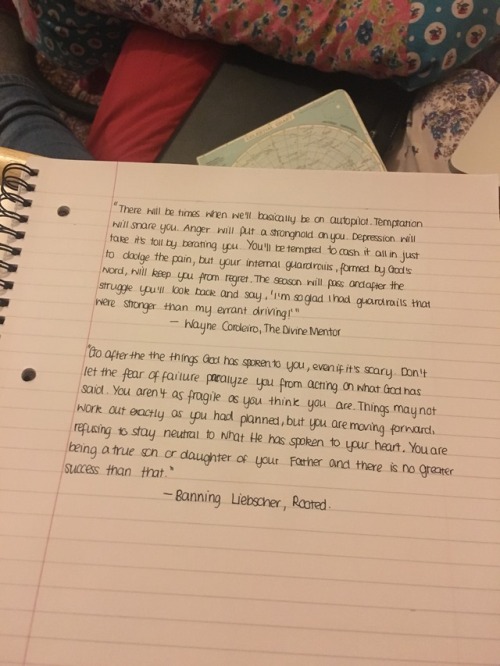 "There will be times when we'll basically be on autopilot. Temptation
will snare you. Anger will put a stronghold on you. Depression will
take it's toll by berating you. You'll be tempted to cash it all in just
to dodge the pain, but your internal guardrails, formed by God's
word, will keep you from regret. The season will pass and after the
struggle you'll look back and say, 'I'm so glad I had guardrails that
were stronger than my errant driving!'"
— Wayne Cordeiro, The Divine Mentor
"Go after the the things God has spoken to you, even if it's scary. Don't
let the fear of failure paralyze you from acting on what God has
said. You aren't as fragile as you think you are. Things may not
work out exactly as you had planned, but you are moving forward,
refusing to stay neutral to what He has spoken to your heart. You are
being a true son or daughter of your Father and there is no greater
success than that."
— Banning Liebscher, Rooted.